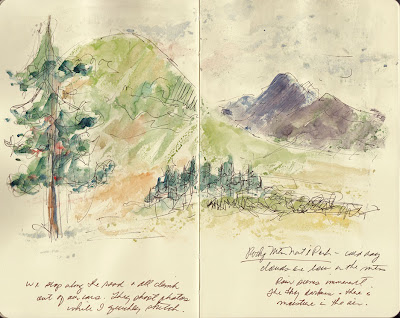 We stop along the road & all climb
out of our cars. They shoot photos
while I quickly sketch.
Rocky Mtn Nat'l Park - cold day
clouds are low in the mtns
Rain seems imminent.
The sky darkens - there is
moisture in the air.